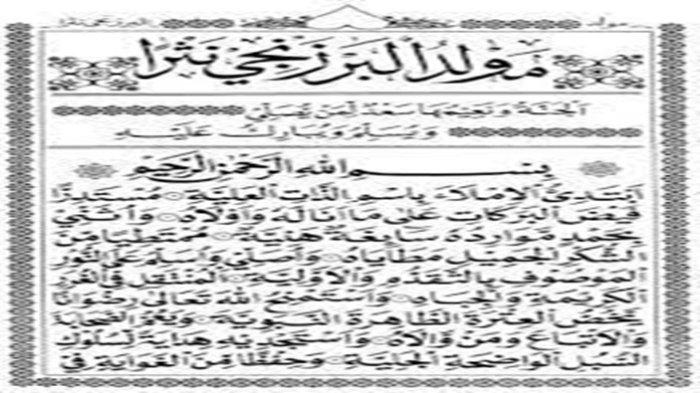 مولد
البرزنجي نثرا
مَوْلِدُ الْبَرْزَنْجِي نَثْرًا
الجنة ونعيمها سعد لمن يصلي
ويسلم ويبارك عليه
بسم الله الرحمن الرحيم
أبتدئ الإملاء باسم الذات العلية مستدرا
فيض البركات على ما أناله وأولاه وأثني
بحمد موارده سائغة هنية ممتطيا من
الشكر الجميل مطاياه وأصلي وأسلم على النور
الموصوف بالتقدم والأولية المنتقل في الغرر
الكريمة والجباه وأستمنح الله تعالى رضوانا
يخص العترة الطاهرة النبوية ويعم الصحابة
والأتباع ومن والاه وأستجديه هداية لسلوك
السبل الواضحة الجلية وحفظا من الغواية في